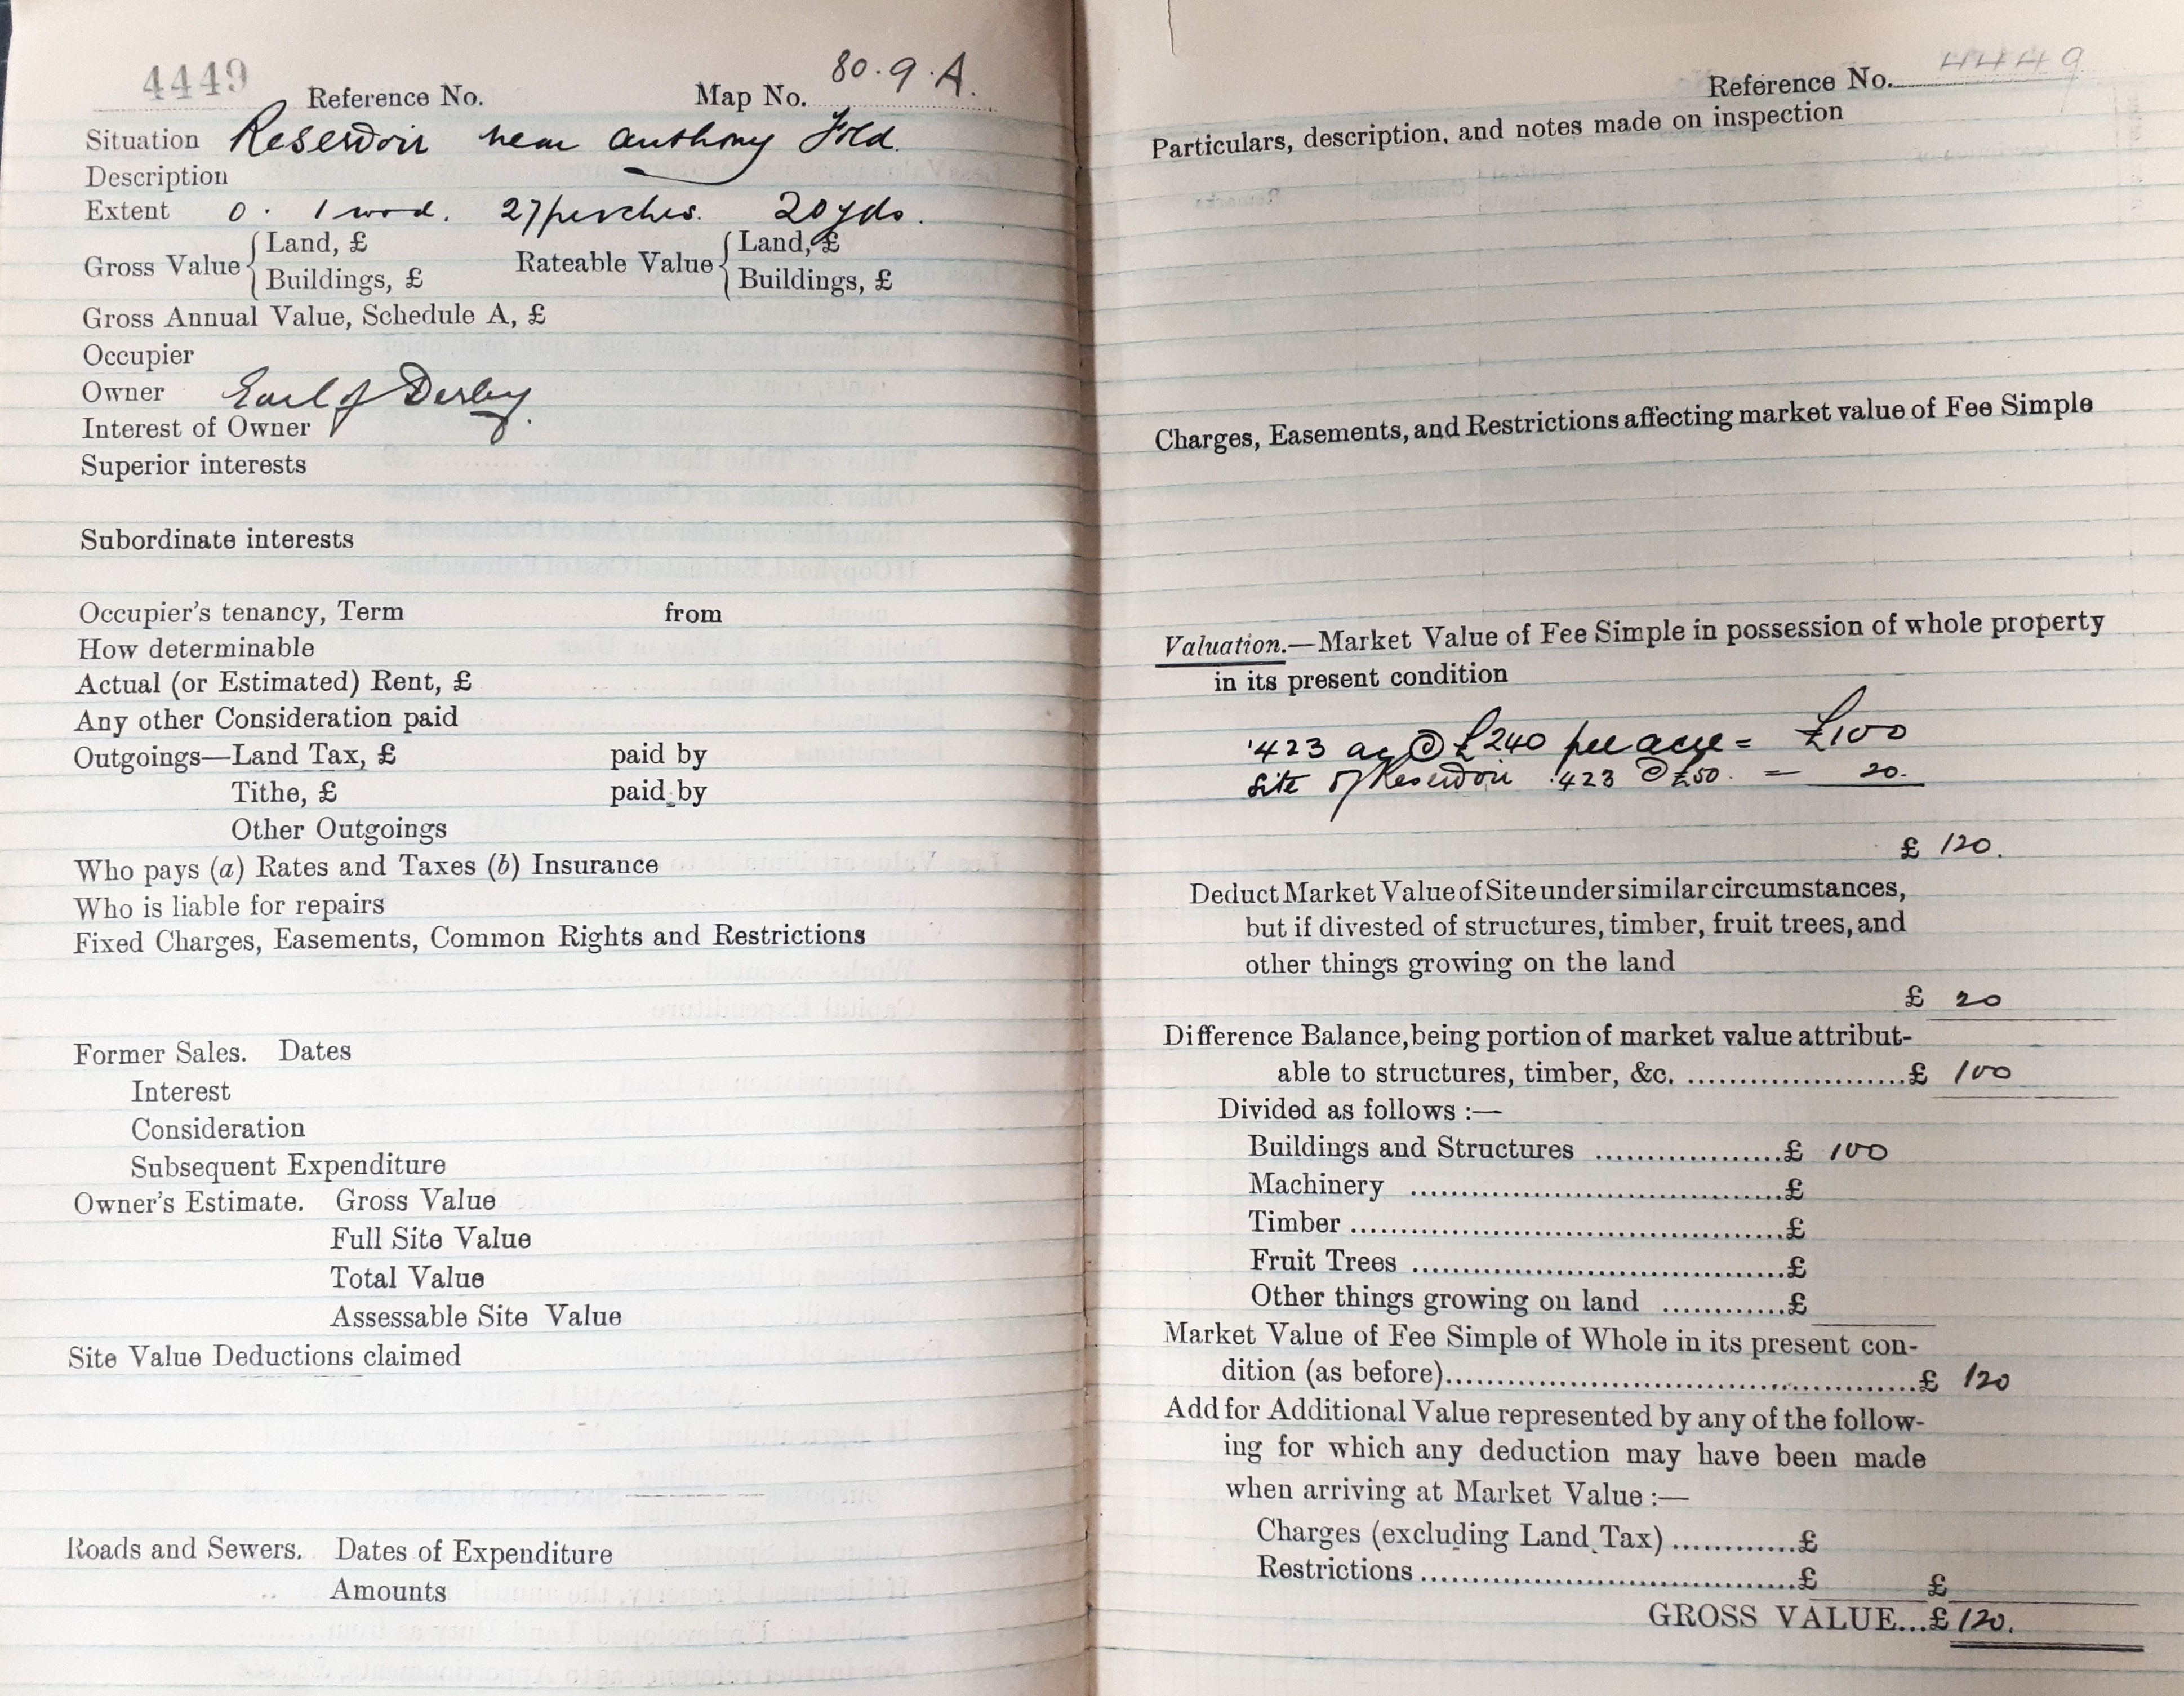 4449 Reference No. Map No. 80.9.A.
Situation Reservoir near Anthony Fold.
Description
Extent 0. 1 rood. 27 perches. 20 yds.
Gross Value { Land, £ Rateable Value { Land, £
Buildings, £ Buildings, £
Gross Annual Value, Schedule A, £
Occupier
Owner Earl of Derby.
Interest of Owner
Superior interests
Subordinate interests
Occupier's tenancy, Term from
How determinable
Actual (or Estimated) Rent, £
Any other Consideration paid
Outgoings—Land Tax, £ paid by
Tithe, £ paid by
Other Outgoings
Who pays (a) Rates and Taxes (b) Insurance
Who is liable for repairs
Fixed Charges, Easements, Common Rights and Restrictions
Former Sales. Dates
Interest
Consideration
Subsequent Expenditure
Owner's Estimate. Gross Value
Full Site Value
Total Value
Assessable Site Value
Site Value Deductions claimed
Roads and Sewers. Dates of Expenditure
Amounts
Reference No. 4449
Particulars, description, and notes made on inspection
Charges, Easements, and Restrictions affecting market value of Fee Simple
Valuation.—Market Value of Fee Simple in possession of whole property
in its present condition
.423 ac @ £240 per acre = £100
Site of Reservoir .423 @ £50. = 20.
£ 120.
Deduct Market Value of Site under similar circumstances,
but if divested of structures, timber, fruit trees, and
other things growing on the land
£ 20
Difference Balance, being portion of market value attribut-
able to structures, timber, &c. ......................£ 100
Divided as follows :—
Buildings and Structures ...................£ 100
Machinery ......................................£
Timber ............................................£
Fruit Trees ......................................£
Other things growing on land ............£
Market Value of Fee Simple of Whole in its present con-
dition (as before)................................................£ 120
Add for Additional Value represented by any of the follow-
ing for which any deduction may have been made
when arriving at Market Value :—
Charges (excluding Land Tax) ............£
Restrictions ......................................£ £
GROSS VALUE...£ 120.